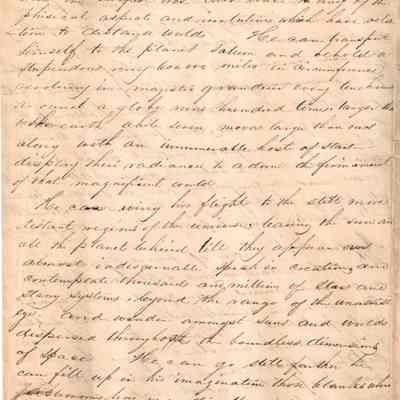 physical aspects and revolutions which have rela
tion to distant worlds He can transport
himself to the planet Saturn and behold a
stupendous ring miles in circumference
revolving in majestic grandeur every ten hours
a globe nine hundred times larger than
the earth and seven moons larger than ours
along with an innumerable host of stars
display their radiance to adorn the firmament
of that magnificent world
He can wing his flight to the still more
distant regions of the universe leaving the sun and
all the planets behind till they appear
almost indiscernible speck in creation and
contemplate thousands and millions of stars and
starry systems beyond the range of the unassisted
eye and wander amongst suns and worlds
dispersed throughout the boundless dimensions
of space He can go still farther he
can fill up in his imagination those blanks which